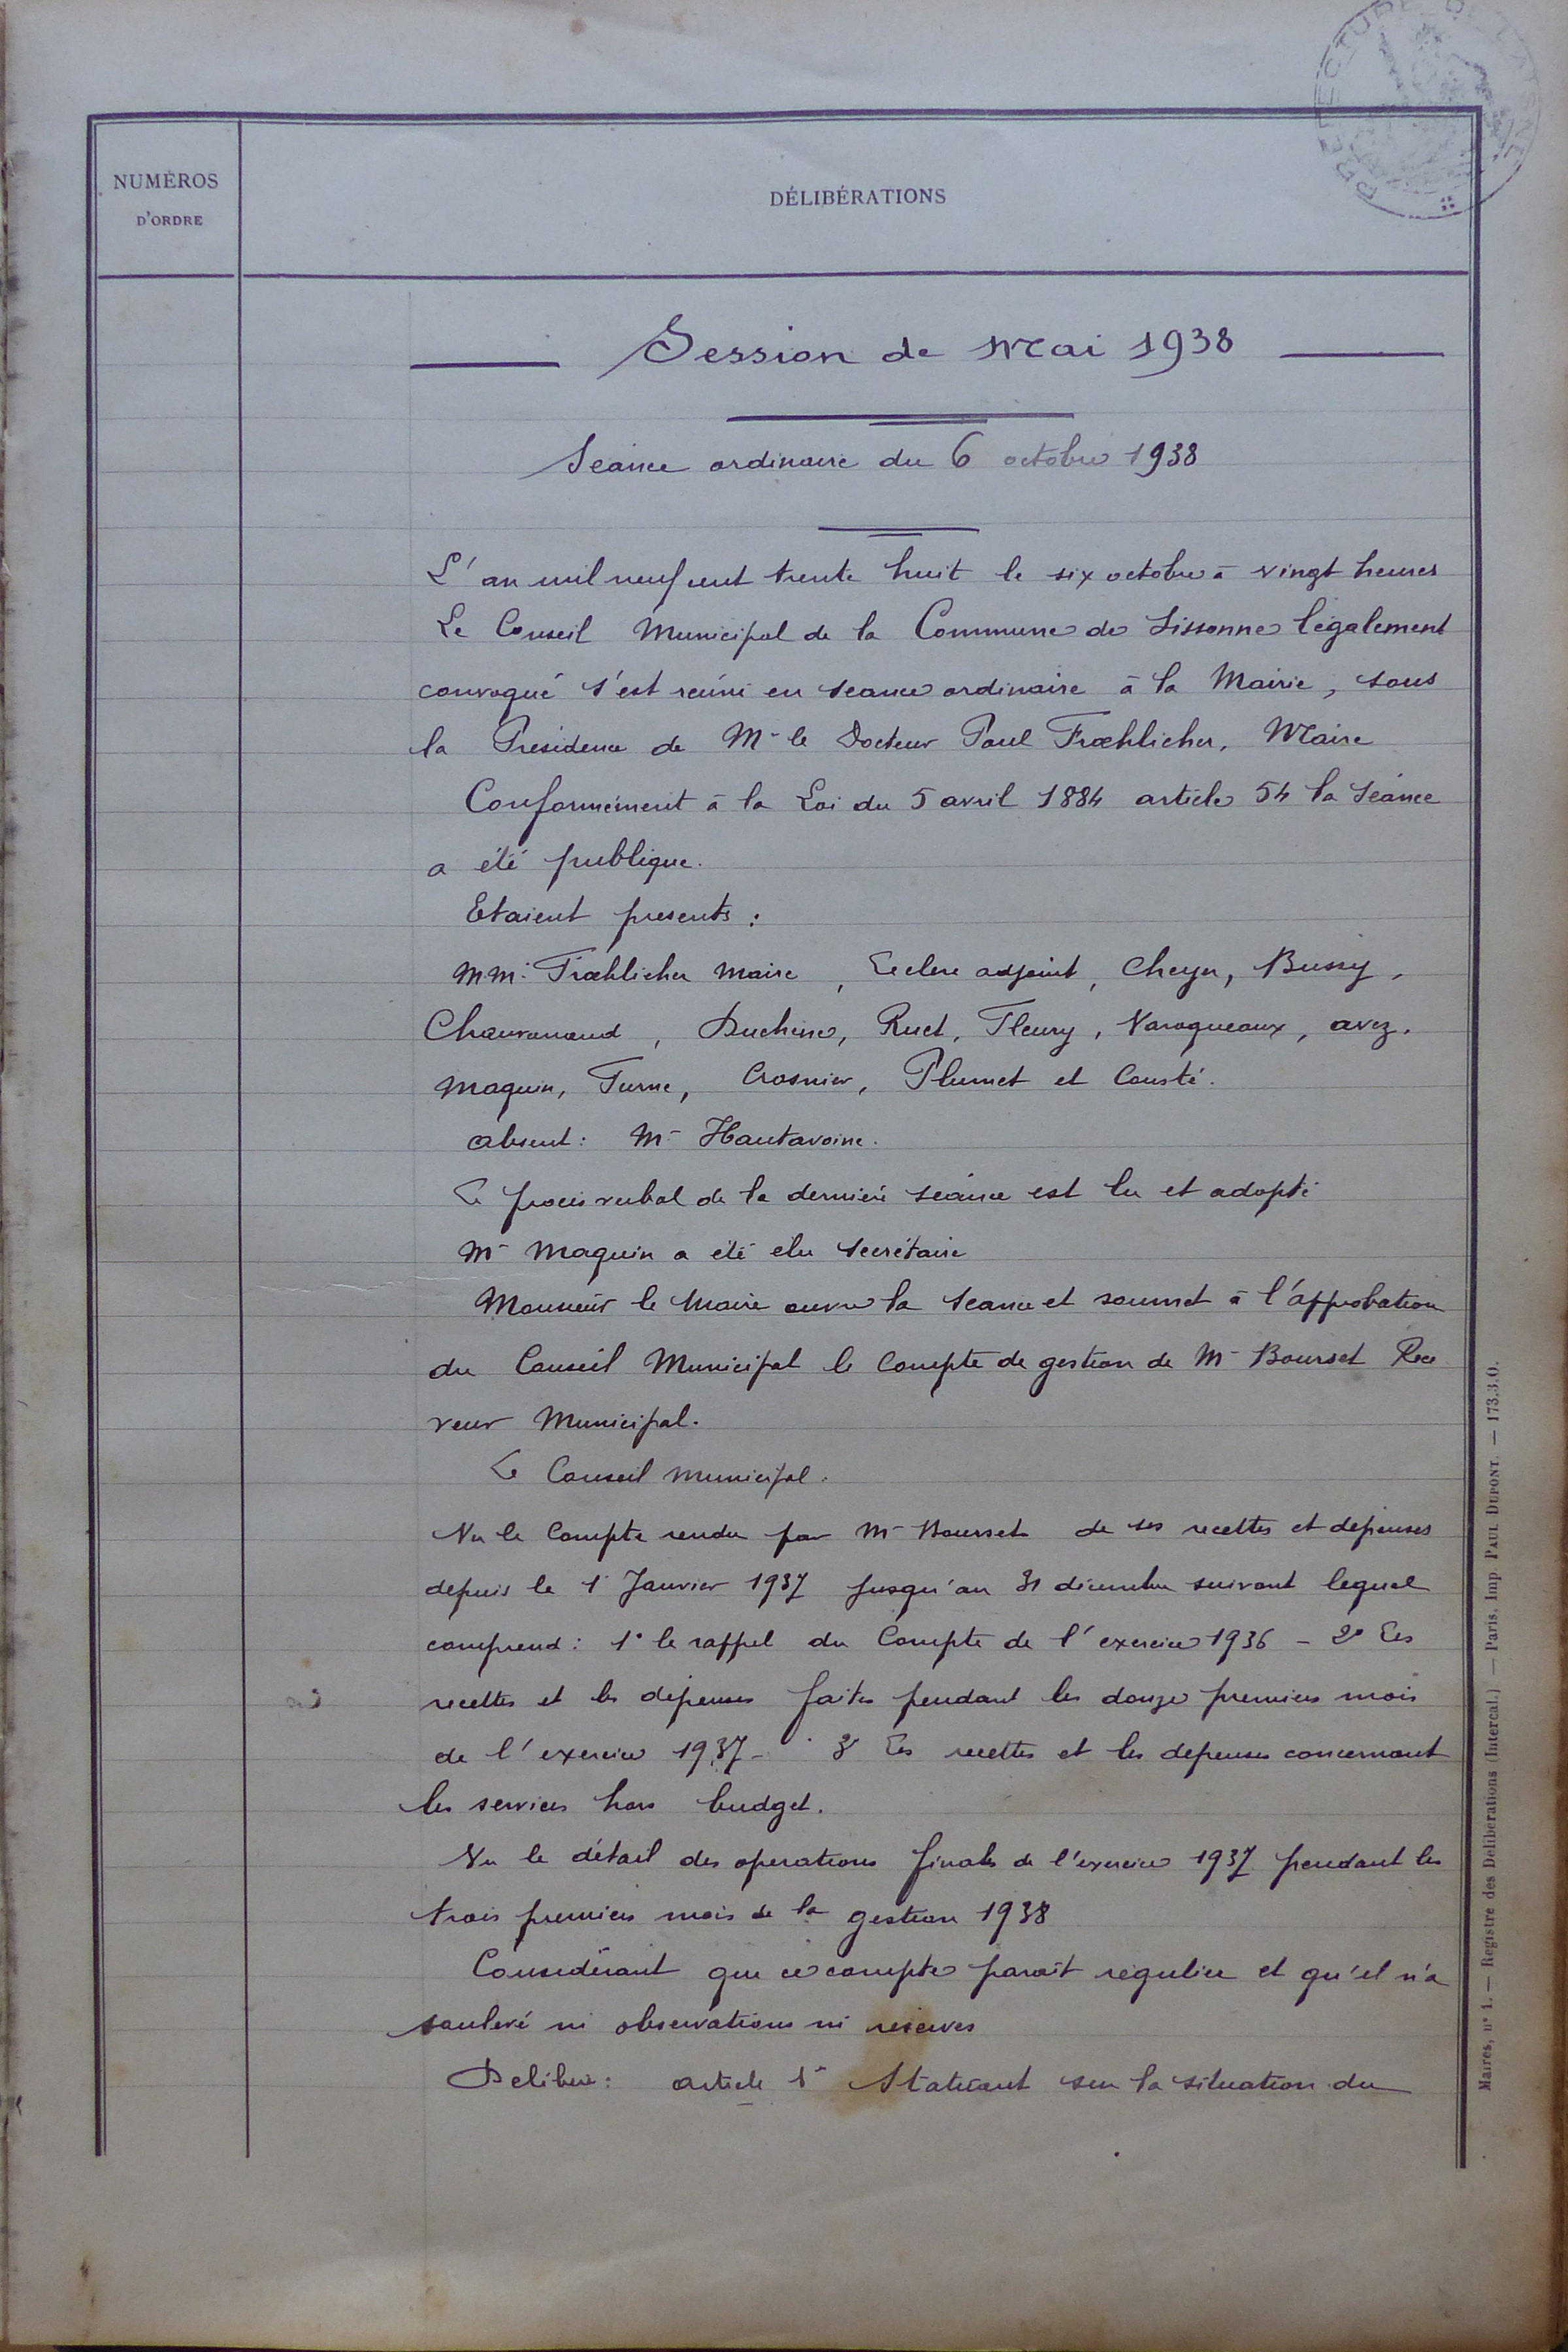 PRÉFECTURE DE L'AISNE
NUMÉROS
D'ORDRE
DÉLIBÉRATIONS
Session de Mai 1938
Séance ordinaire du 6 octobre 1938
L'an mil neuf cent trente huit le six octobre à vingt heures
Le Conseil Municipal de la Commune de Sissonne légalement
convoqué s'est réuni en séance ordinaire à la Mairie, sous
la Présidence de Mr le Docteur Paul Frœhlicher, Maire
Conformément à la Loi du 5 avril 1884 article 54 la séance
a été publique.
Etaient présents :
MM. Frœhlicher maire, Leclere adjoint, Cheyer, Bussy,
Duchêne, Ruet, Fleury, Varoqueaux, avez,
Maquin, Turne, Crosnier, Plumet et Cousté.
absent : Mr Hautavoine.
Le procès verbal de la dernière séance est lu et adopté
Mr Maquin a été élu secrétaire
Monsieur le Maire ouvre la séance et soumet à l'approbation
du Conseil Municipal le compte de gestion de Mr Bourset Rece
veur Municipal.
Le Conseil Municipal.
Vu le Compte rendu par Mr Bourset de ses recettes et dépenses
depuis le 1r Janvier 1937 jusqu'au 31 décembre suivant lequel
comprend : 1° le rappel du Compte de l'exercice 1936 - 2° Les
recettes et les dépenses faites pendant les douze premiers mois
de l'exercice 1937 - 3° Les recettes et les dépenses concernant
les services hors budget.
Vu le détail des opérations finales de l'exercice 1937 pendant les
trois premiers mois de la gestion 1938
Considérant que ce compte paraît régulier et qu'il n'a
soulevé ni observations ni réserves
Délibère : article 1er Statuant sur la situation du
Maires, n° 1. — Registre des Délibérations (Intercal.) — Paris, Imp PAUL DUPONT. — 173.3.O.